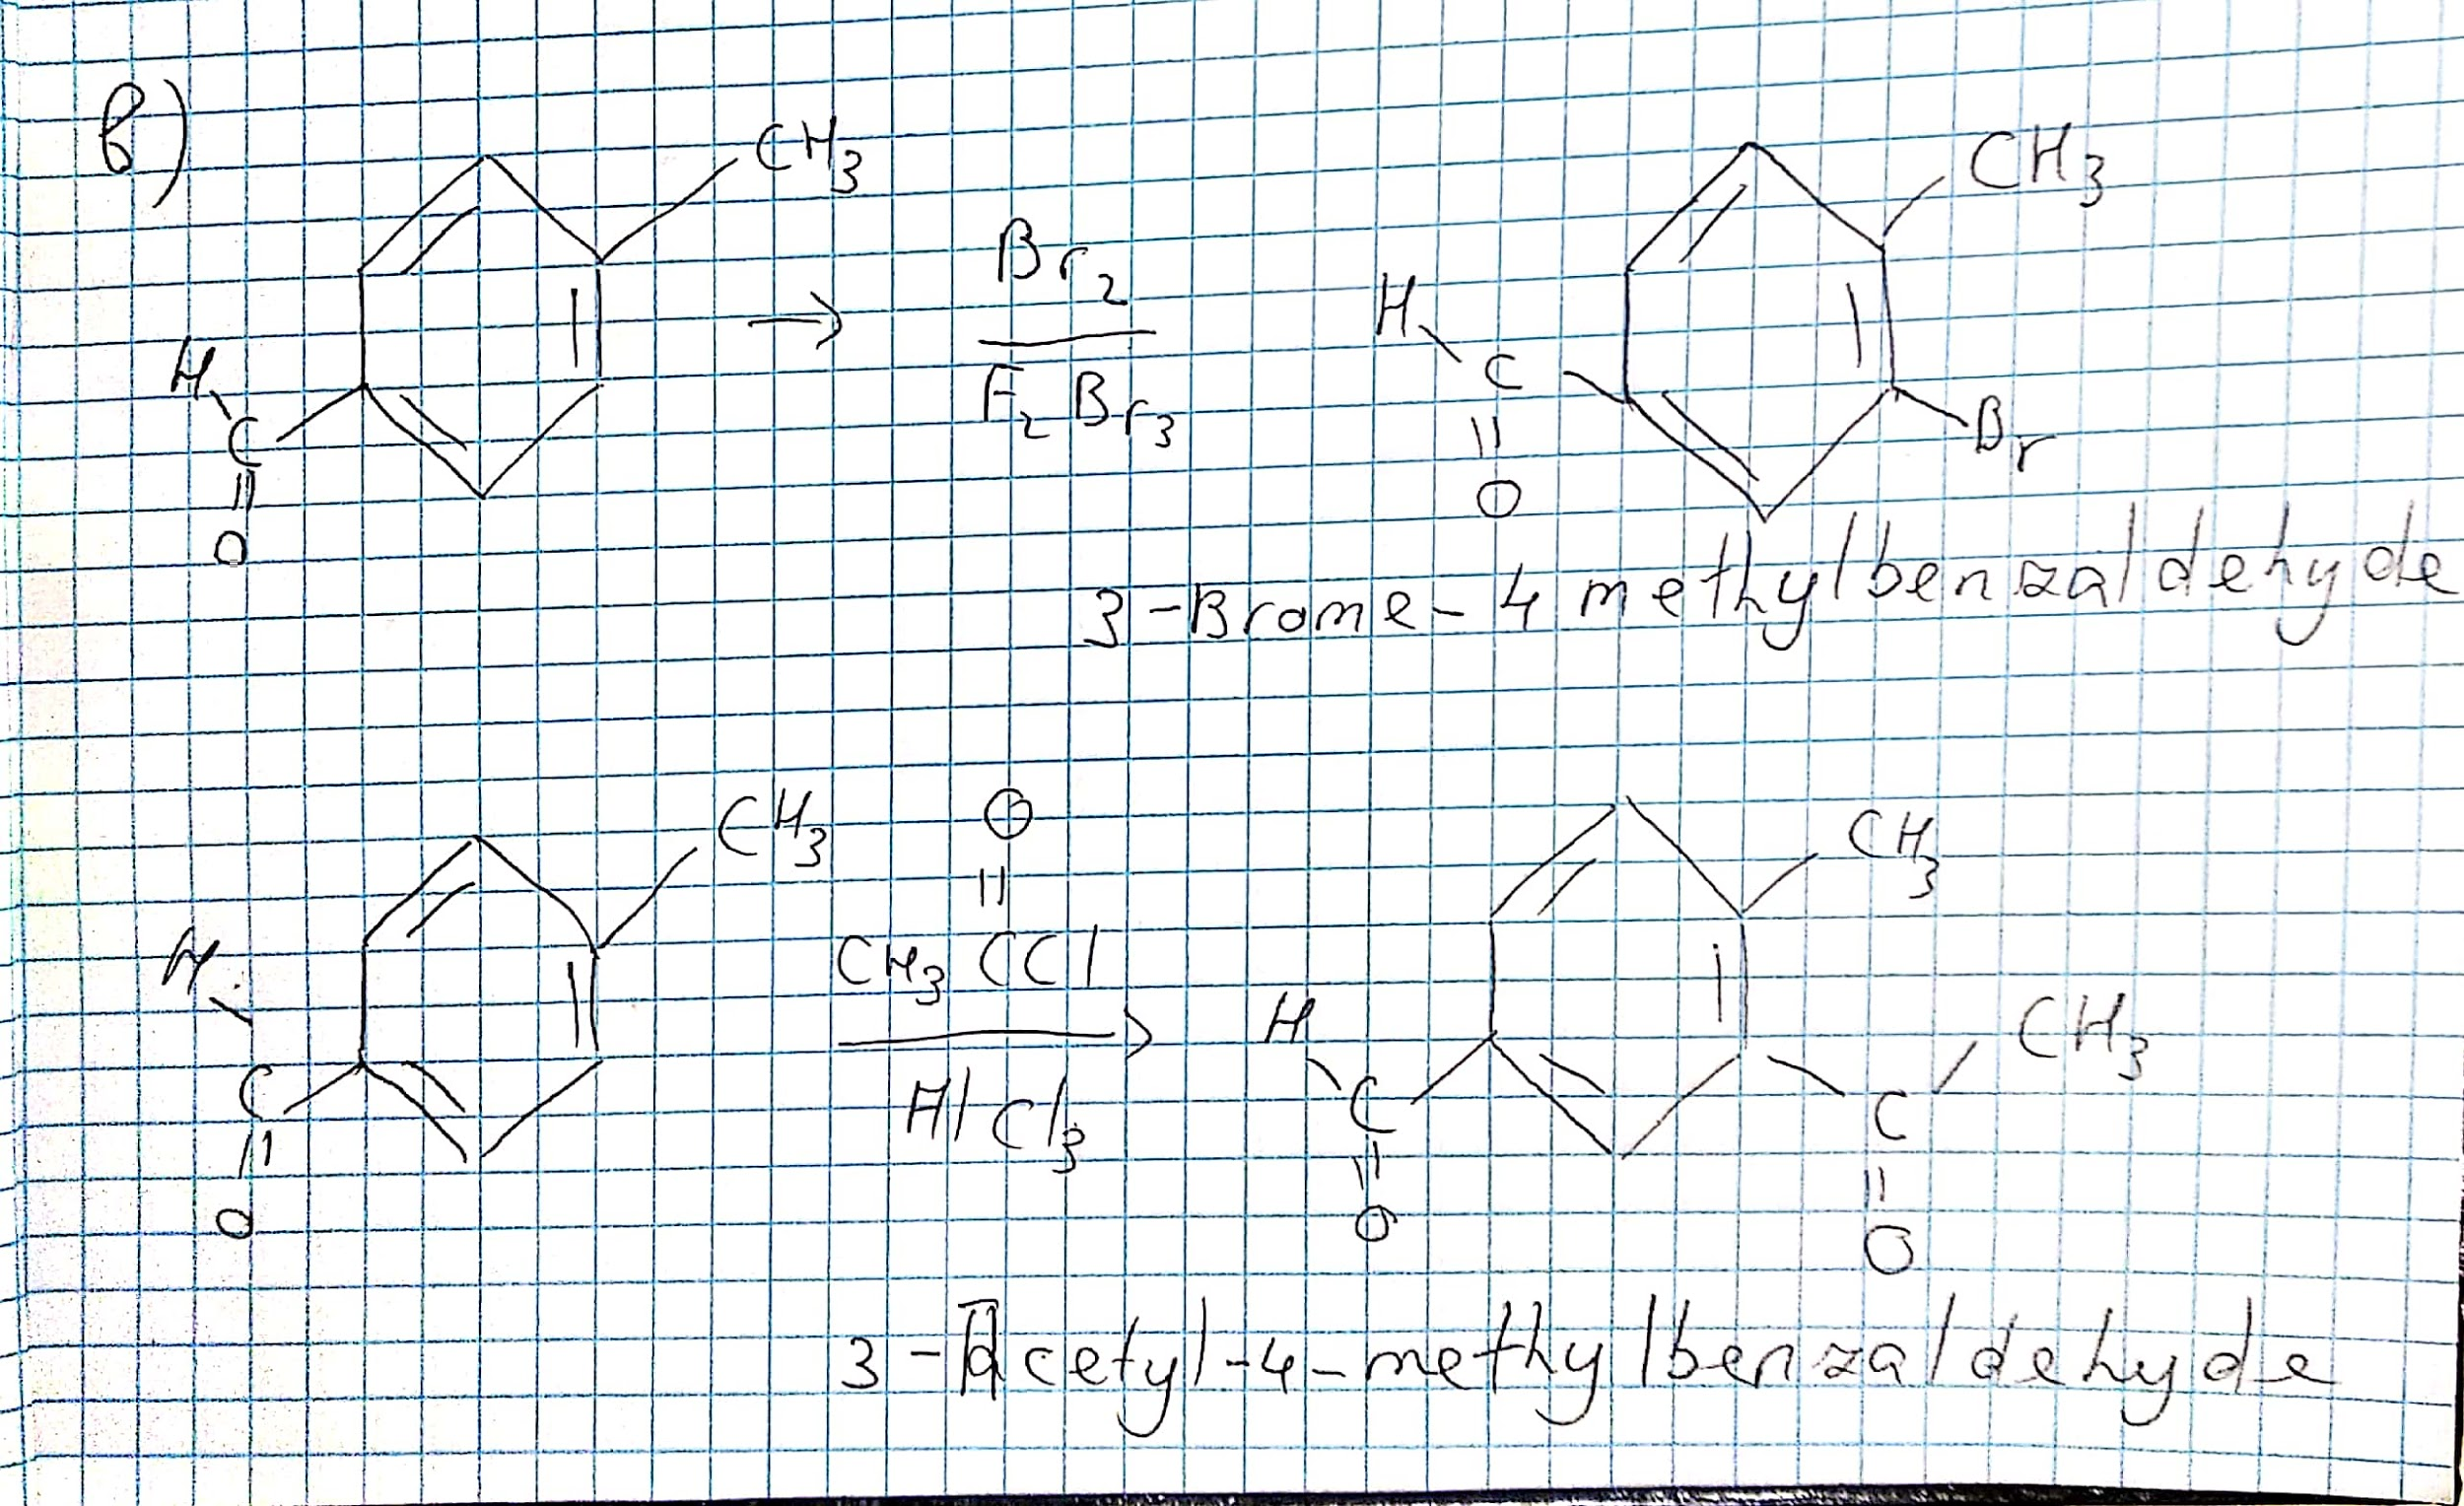 в)
CH3
H
C
O
→
Br2
F2Br3
CH3
H
C
O
Br
3-Brome-4 methylbenzaldehyde
CH3
H
C
O
O
CH3CCl
AlCl3
CH3
H
C
O
C
CH3
O
3-Acetyl-4-methylbenzaldehyde